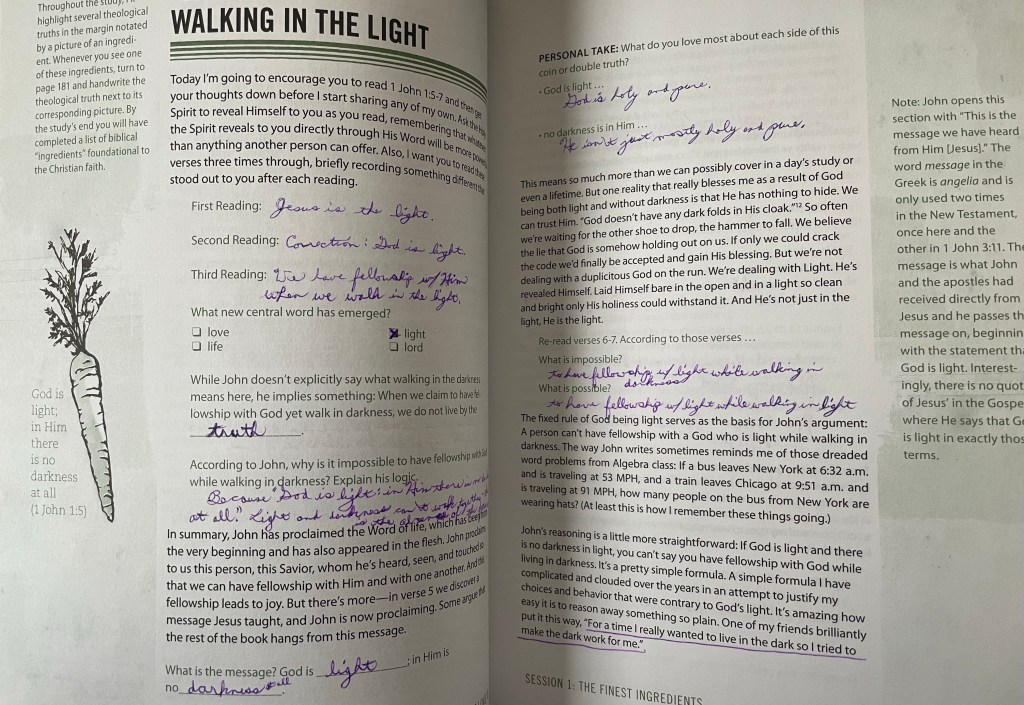 Throughout the study, I'll
highlight several theological
truths in the margin notated
by a picture of an ingredi-
ent. Whenever you see one
of these ingredients, turn to
page 181 and handwrite the
theological truth next to its
corresponding picture. By
the study's end you will have
completed a list of biblical
"ingredients" foundational to
the Christian faith.
God is
light;
in Him
there
is no
darkness
at all
(1 John 1:5)
WALKING IN THE LIGHT
Today I'm going to encourage you to read 1 John 1:5-7 and then get
your thoughts down before I start sharing any of my own. Ask the Holy
Spirit to reveal Himself to you as you read, remembering that whatever
the Spirit reveals to you directly through His Word will be more powerful
than anything another person can offer. Also, I want you to read these
verses three times through, briefly recording something different that
stood out to you after each reading.
First Reading: Jesus is the light.
Second Reading: Correction: God is light.
Third Reading: We have fellowship w/ Him
when we walk in the light.
What new central word has emerged?
love light
life lord
While John doesn't explicitly say what walking in the darkness
means here, he implies something: When we claim to have fel-
lowship with God yet walk in darkness, we do not live by the
truth.
According to John, why is it impossible to have fellowship with God
while walking in darkness? Explain his logic.
Because "God is light: in Him there is no
at all." Light and darkness can't
is the absence of
In summary, John has proclaimed the Word of life, which has been from
the very beginning and has also appeared in the flesh. John proclaims
to us this person, this Savior, whom he's heard, seen, and touched so
that we can have fellowship with Him and with one another. And this
fellowship leads to joy. But there's more—in verse 5 we discover a
message Jesus taught, and John is now proclaiming. Some argue that
the rest of the book hangs from this message.
What is the message? God is light; in Him is
no darkness at all.
PERSONAL TAKE: What do you love most about each side of this
coin or double truth?
• God is light ...
God is holy and pure.
• no darkness is in Him ...
He isn't just mostly holy and pure.
This means so much more than we can possibly cover in a day's study or
even a lifetime. But one reality that really blesses me as a result of God
being both light and without darkness is that He has nothing to hide. We
can trust Him. "God doesn't have any dark folds in His cloak."12 So often
we're waiting for the other shoe to drop, the hammer to fall. We believe
the lie that God is somehow holding out on us. If only we could crack
the code we'd finally be accepted and gain His blessing. But we're not
dealing with a duplicitous God on the run. We're dealing with Light. He's
revealed Himself. Laid Himself bare in the open and in a light so clean
and bright only His holiness could withstand it. And He's not just in the
light, He is the light.
Re-read verses 6-7. According to those verses ...
What is impossible?
to have fellowship w/ light while walking in
darkness
What is possible?
to have fellowship w/ light while walking in light
The fixed rule of God being light serves as the basis for John's argument:
A person can't have fellowship with a God who is light while walking in
darkness. The way John writes sometimes reminds me of those dreaded
word problems from Algebra class: If a bus leaves New York at 6:32 a.m.
and is traveling at 53 MPH, and a train leaves Chicago at 9:51 a.m. and
is traveling at 91 MPH, how many people on the bus from New York are
wearing hats? (At least this is how I remember these things going.)
John's reasoning is a little more straightforward: If God is light and there
is no darkness in light, you can't say you have fellowship with God while
living in darkness. It's a pretty simple formula. A simple formula I have
complicated and clouded over the years in an attempt to justify my
choices and behavior that were contrary to God's light. It's amazing how
easy it is to reason away something so plain. One of my friends brilliantly
put it this way, "For a time I really wanted to live in the dark so I tried to
make the dark work for me."
SESSION 1: THE FINEST INGREDIENTS
Note: John opens this
section with "This is the
message we have heard
from Him [Jesus]." The
word message in the
Greek is angelia and is
only used two times
in the New Testament,
once here and the
other in 1 John 3:11. The
message is what John
and the apostles had
received directly from
Jesus and he passes th
message on, beginnin
with the statement tha
God is light. Interest-
ingly, there is no quot
of Jesus' in the Gospe
where He says that Go
is light in exactly thos
terms.